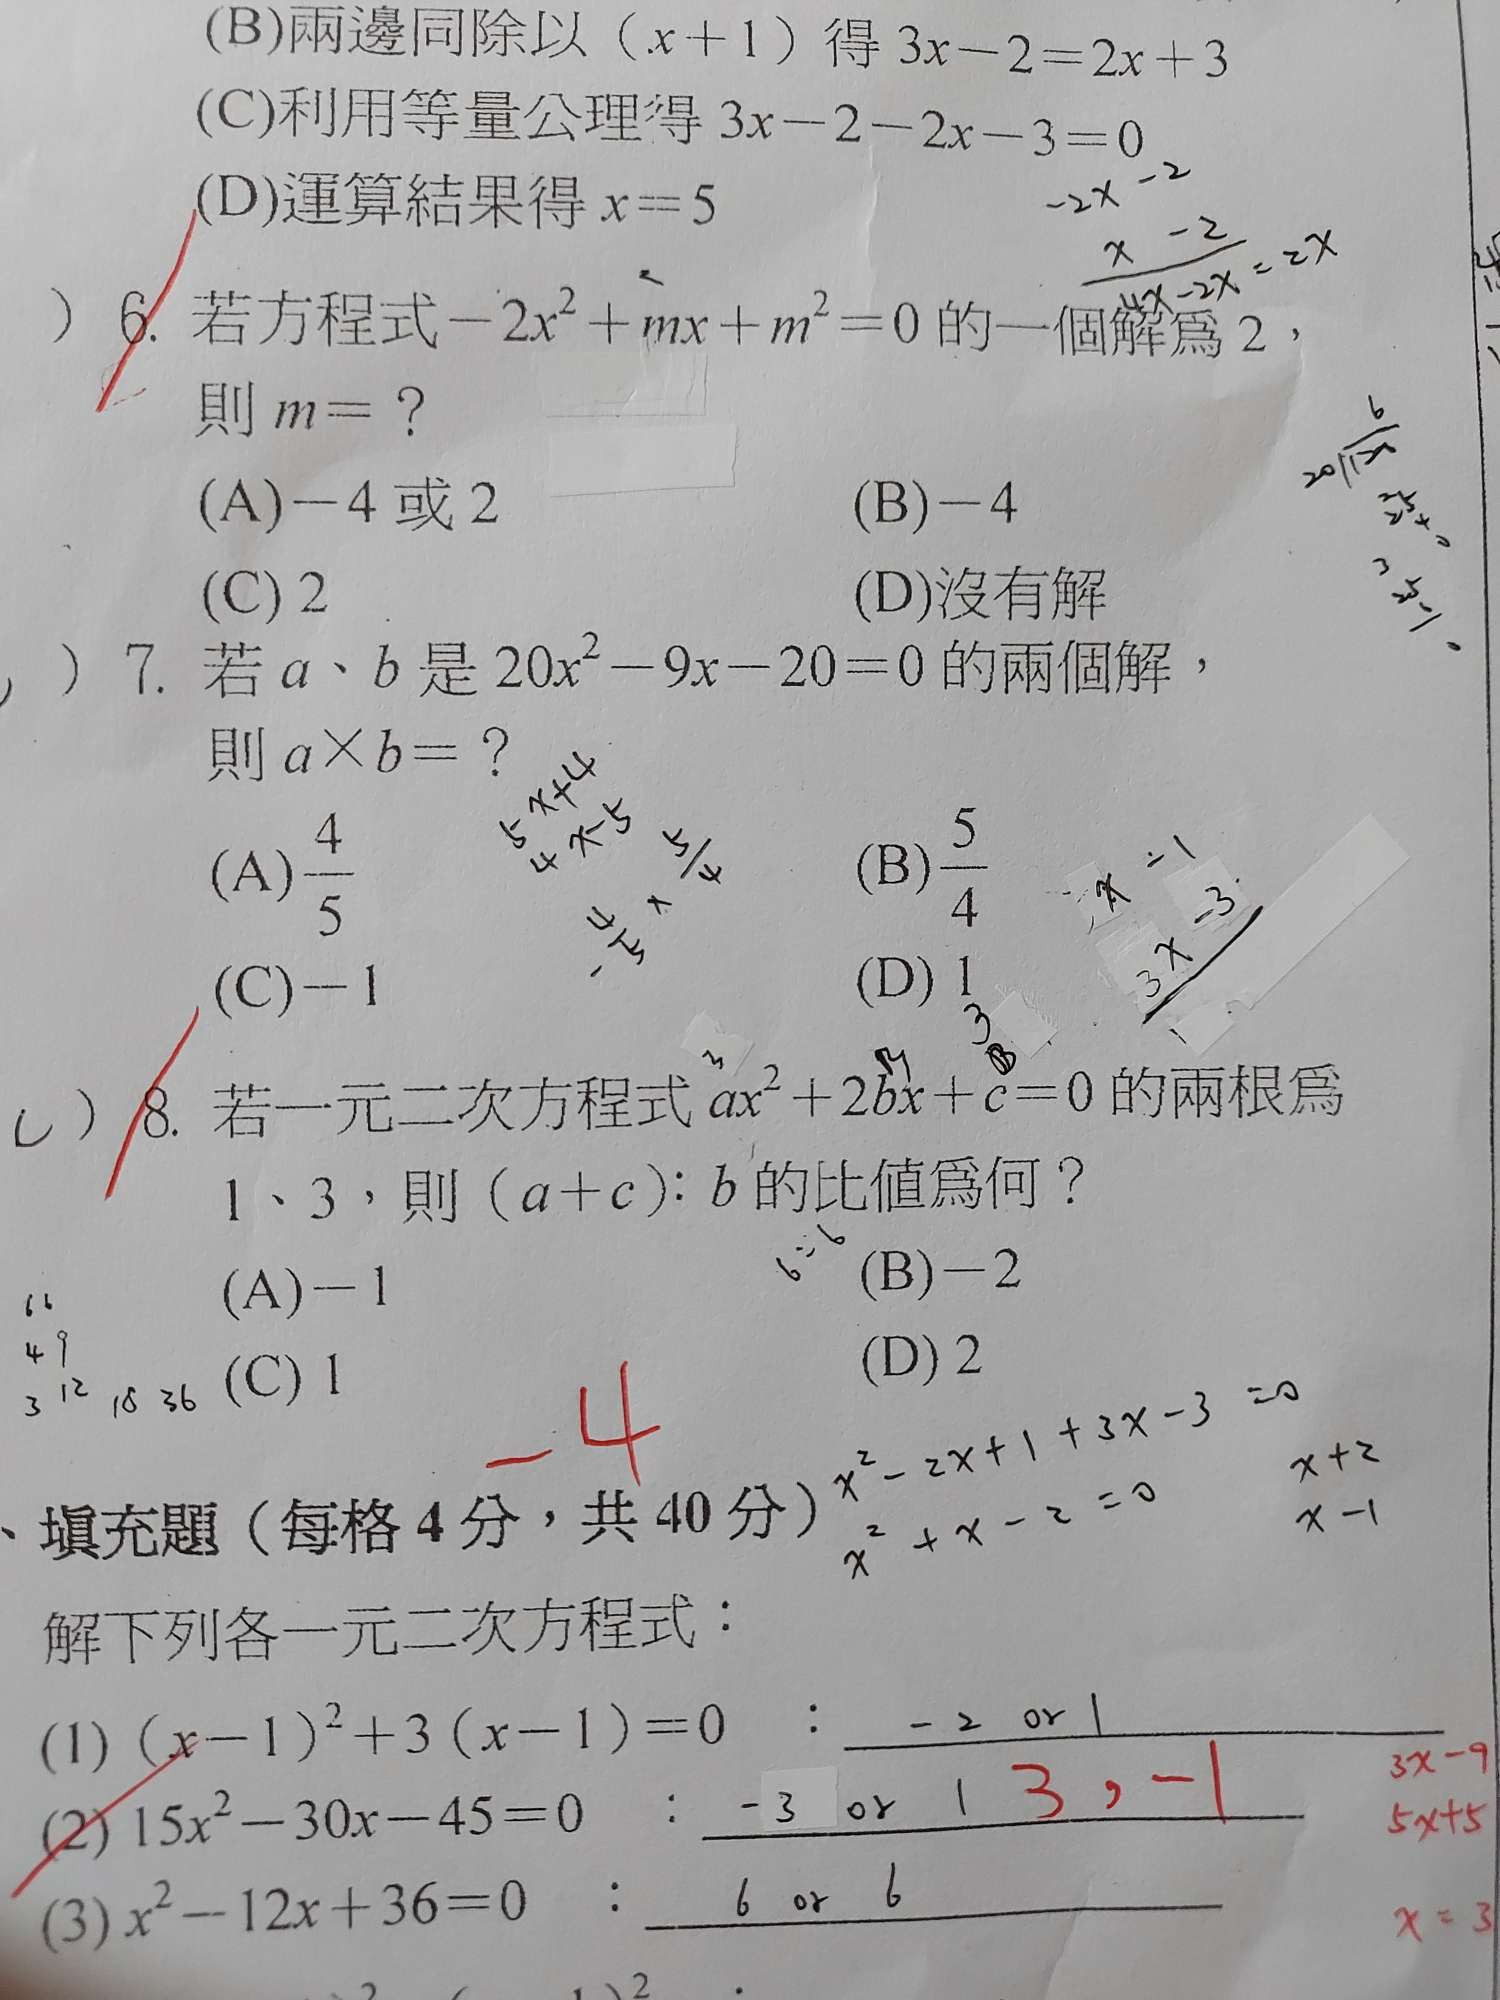 (B)兩邊同除以（x＋1）得 3x－2＝2x＋3
(C)利用等量公理得 3x－2－2x－3＝0
(D)運算結果得 x＝5
-2x -2
x -2
4x-2x=2x
）6. 若方程式－2x²＋mx＋m²＝0 的一個解為 2，
則 m＝？
(A)－4 或 2 (B)－4
(C) 2 (D)沒有解
）7. 若 a、b 是 20x²－9x－20＝0 的兩個解，
則 a×b＝？
5x+4
4x-5
(A) 4/5 (B) 5/4
-4/5 × 5/4
x -1
3x -3
(C)－1 (D) 1
）8. 若一元二次方程式 ax²＋2bx＋c＝0 的兩根為
1、3，則（a＋c）：b 的比值為何？
6:6
(A)－1 (B)－2
(C) 1 (D) 2
49
3 12 18 36
-4
x²-2x+1+3x-3=0
x²+x-2=0
x+2
x-1
、填充題（每格 4 分，共 40 分）
解下列各一元二次方程式：
(1)（x－1）²＋3（x－1）＝0 ： -2 or 1
(2) 15x²－30x－45＝0 ： -3 or 1 3，-1
3x-9
5x+5
(3) x²－12x＋36＝0 ： 6 or 6
x=3